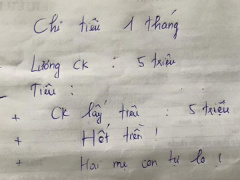 Chi tiêu 1 tháng
Lương CK : 5 triệu
- Tiêu :
+ CK lấy tiêu : 5 triệu
+ Hết tiền !
+ Hai mẹ con tự lo !